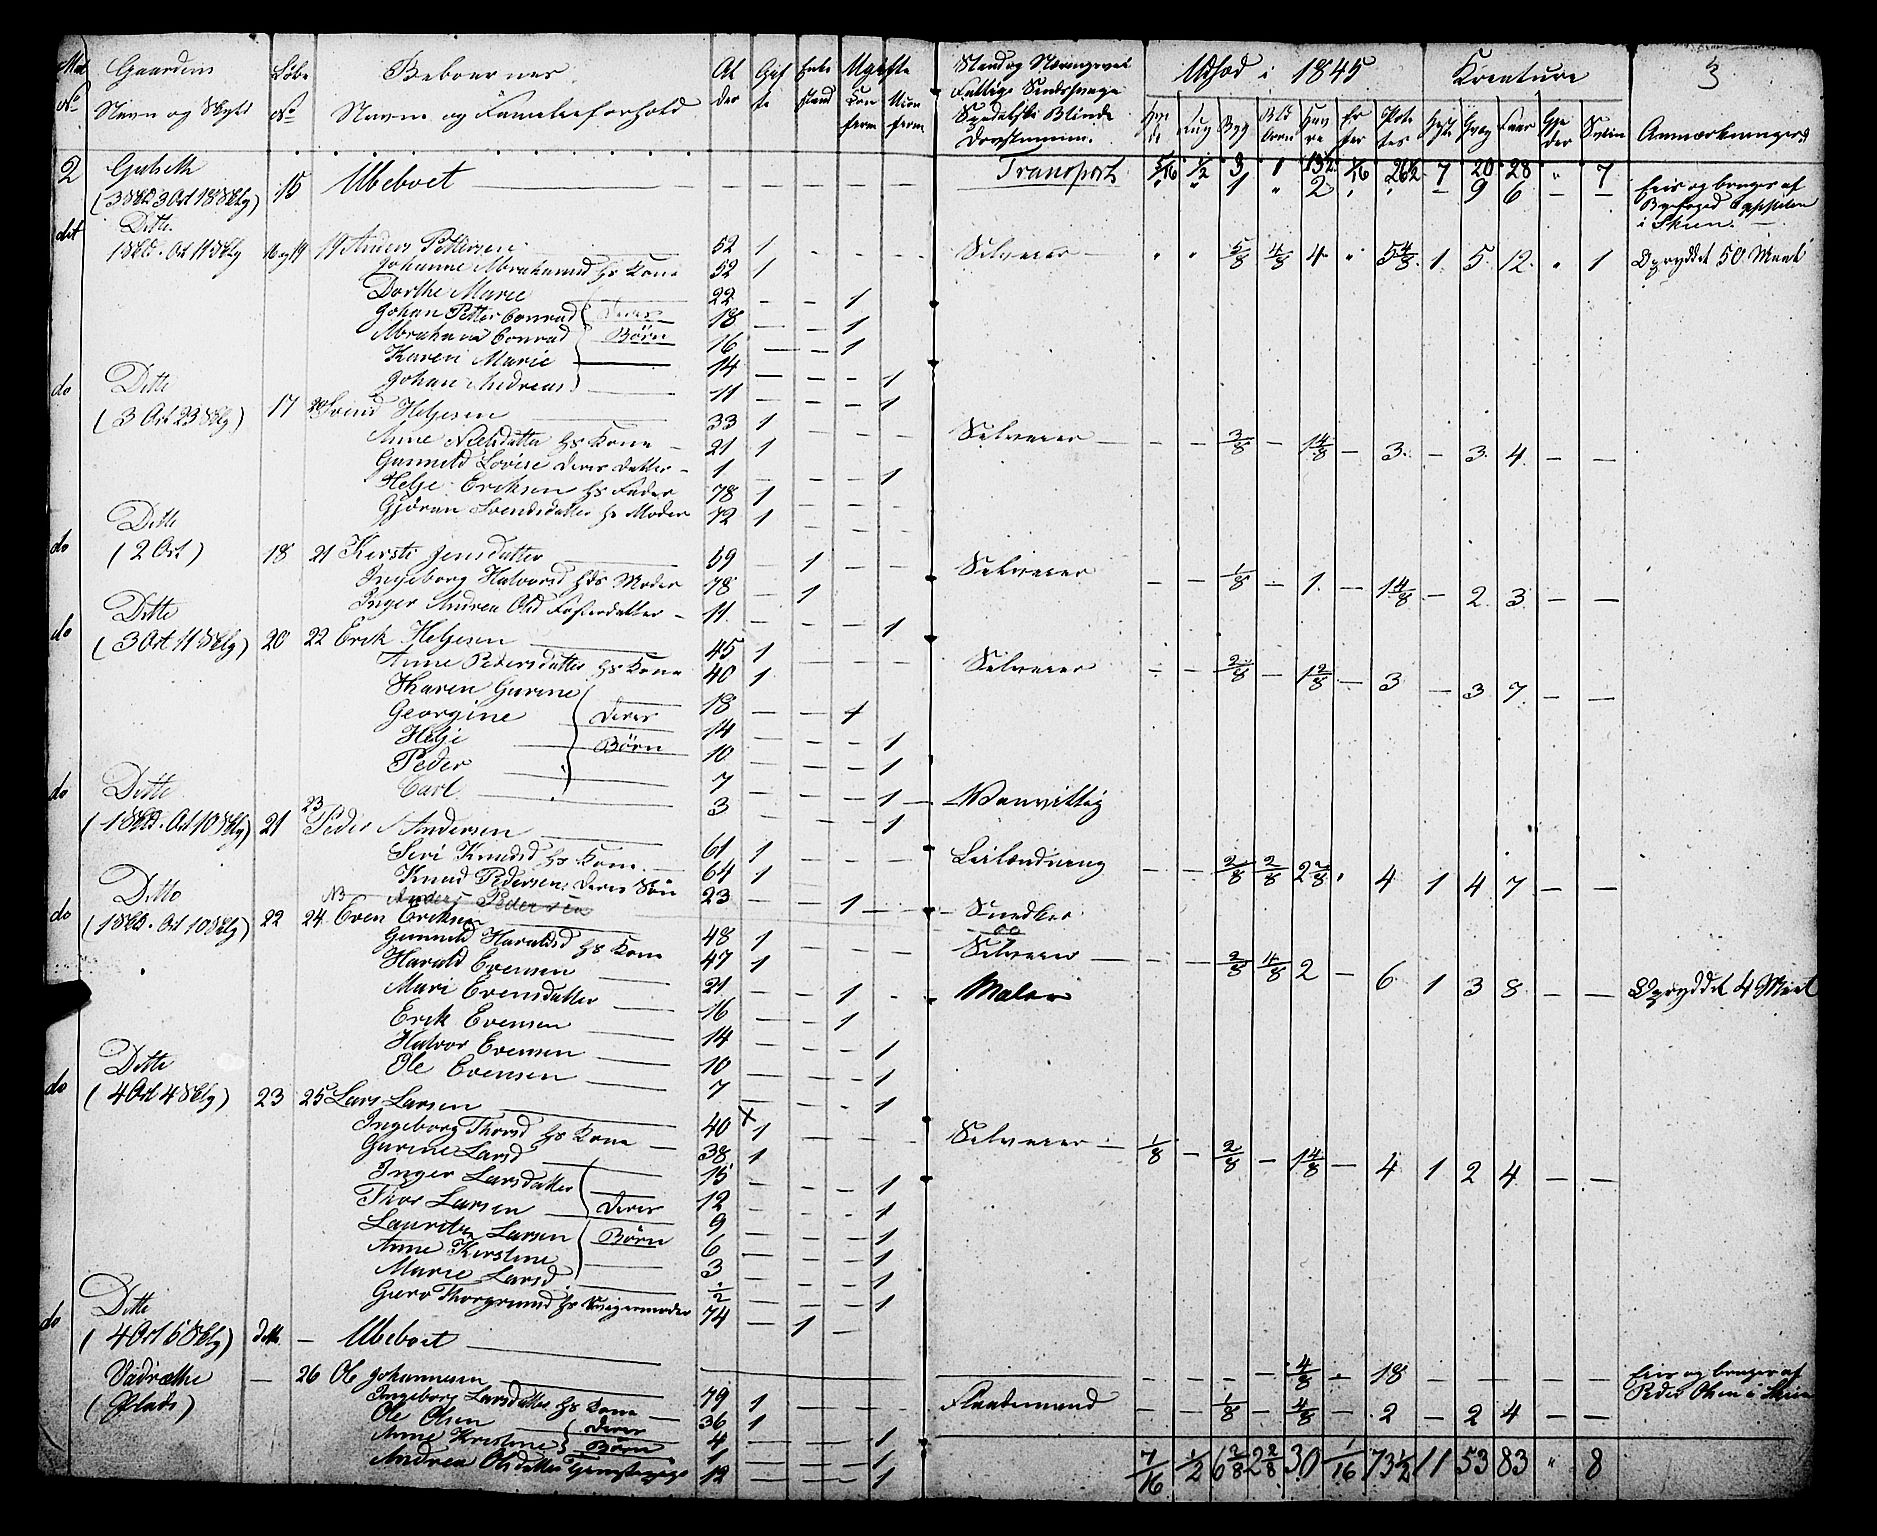 Mat No Gaardens Navn og Skyld Løbe No Beboernes Navne og Familieforhold Al der Gif te Enke stand Ugifte Kon firm Ukon firm Stand og Næringsvei Fattige Sindssvage Spedalske Blinde Døvstumme. Udsæd i 1845 Hve de Rug Byg Bld korn Hav re Er ter Pote tes Kreature Heste Qvæg Faar Gje der Sviin Anmærkninger 3
2 Gulseth (3 Skd 3 Ort 18 Sklg) 15 Ubeboet Transport 5/16 1/2 3 1 13 1/2 1/16 26 1/2 7 20 28 " 7
" " 1 " 2 " " — 9 6 — — Eies og bruges af Byfoged i Skien.
dit Ditto 1 Skd. Ort 11 Sklg 16 og 19 19 Anders Pettersen 52 1 Selveier " " 5/8 4/8 4 " 5 4/8 1 5 12 " 1 Opryddet 50 Maal
Johanne Abrahamsd hs Kone 52 1
Dorthe Marie 22 1
Johan Petter Conrad Deres 18 1
Abraham Conrad Børn 16 1
Karen Marie 14 1
Johan Andreas 11 1
do Ditto (3 Ort 23 Sklg) 17 20 Svend Helgesen 33 1 Selveier — — 3/8 — 1 4/8 — 3 — 3 4 — —
Anne Nielsdatter hs Kone 21 1
Gunnild Lovise deres Datter 1 1
Helge Eriksen hs Fader 78 1
Gjøran Svendsdatter hs Moder 72 1
do Ditto (2 Ort) 18 21 Kirsti Jensdatter 59 1 Selveier — — 1/8 — 1 — 1 4/8 — 2 3 — —
Ingeborg Halvorsd hds Moder 78 1
Inger Andrea Olsd Fosterdatter 11 1
do Ditto (3 Ort 11 Sklg) 20 22 Erik Helgesen 45 1 Selveier — — 2/8 — 1 2/8 — 3 — 3 7 — —
Anne Pedersdatter hs Kone 40 1
Karen Gurine 18 1
Georgine Deres 14 1
Helge Børn 10 1
Peder 7 1 Vanvittig
Carl 3 1
do Ditto (1 Skd. Ort 10 Sklg) 21 23 Peder Andersen 61 1 Leilændning — — 2/8 2/8 2 2/8 " 4 1 4 7 — —
Siri Knudsd hs Kone 64 1
Knud Pedersen deres Søn 23 1 Snedker
NB Anders Pedersen
do Ditto (1 Skd. Ort 10 Sklg) 22 24 Even Eriksen 48 1 Selveier — — 2/8 4/8 2 — 6 1 3 8 — — Opryddet 4 Maal
Gunnild Haraldsd hs Kone 47 1
Harald Evensen 21 1 Maler
Mari Evensdatter 16 1
Erik Evensen 14 1
Halvor Evensen 10 1
Ole Evensen 7 1
do Ditto (4 Ort 4 Sklg) 23 25 Lars Larsen 40 x 1 Selveier 1/8 — 2/8 — 1 4/8 — 4 1 2 4 — —
Ingeborg Thorsd hs Kone 38 1
Gurine Larsd 15 1
Inger Larsdatter 12 1
Thor Larsen Deres 9 1
Lauritz Larsen Børn 6 1
Anne Kirstine 3 1
Marie Larsd 1/2 1
Guro Thorgrimsd hs Svigermoder 74 1
do Ditto (4 Ort 6 Sklg) ditto — Ubeboet — — — — 4/8 — 18 — — — — — Eies og bruges af Peder Olsen i Skien
Vadrætte (Plads) — 26 Ole Johannesen 79 1 Flaademand — — 1/8 — 4/8 — 2 — 2 4 — —
Ingeborg Larsdatter hs Kone 36 1
Ole Olsen Deres 4 1
Anne Kirstine Børn 1 1
Andrea Olsdatter Tjenstepige 12 1
7/16 1/2 6 3/8 2 2/8 30 1/16 73 1/2 11 53 83 " 8